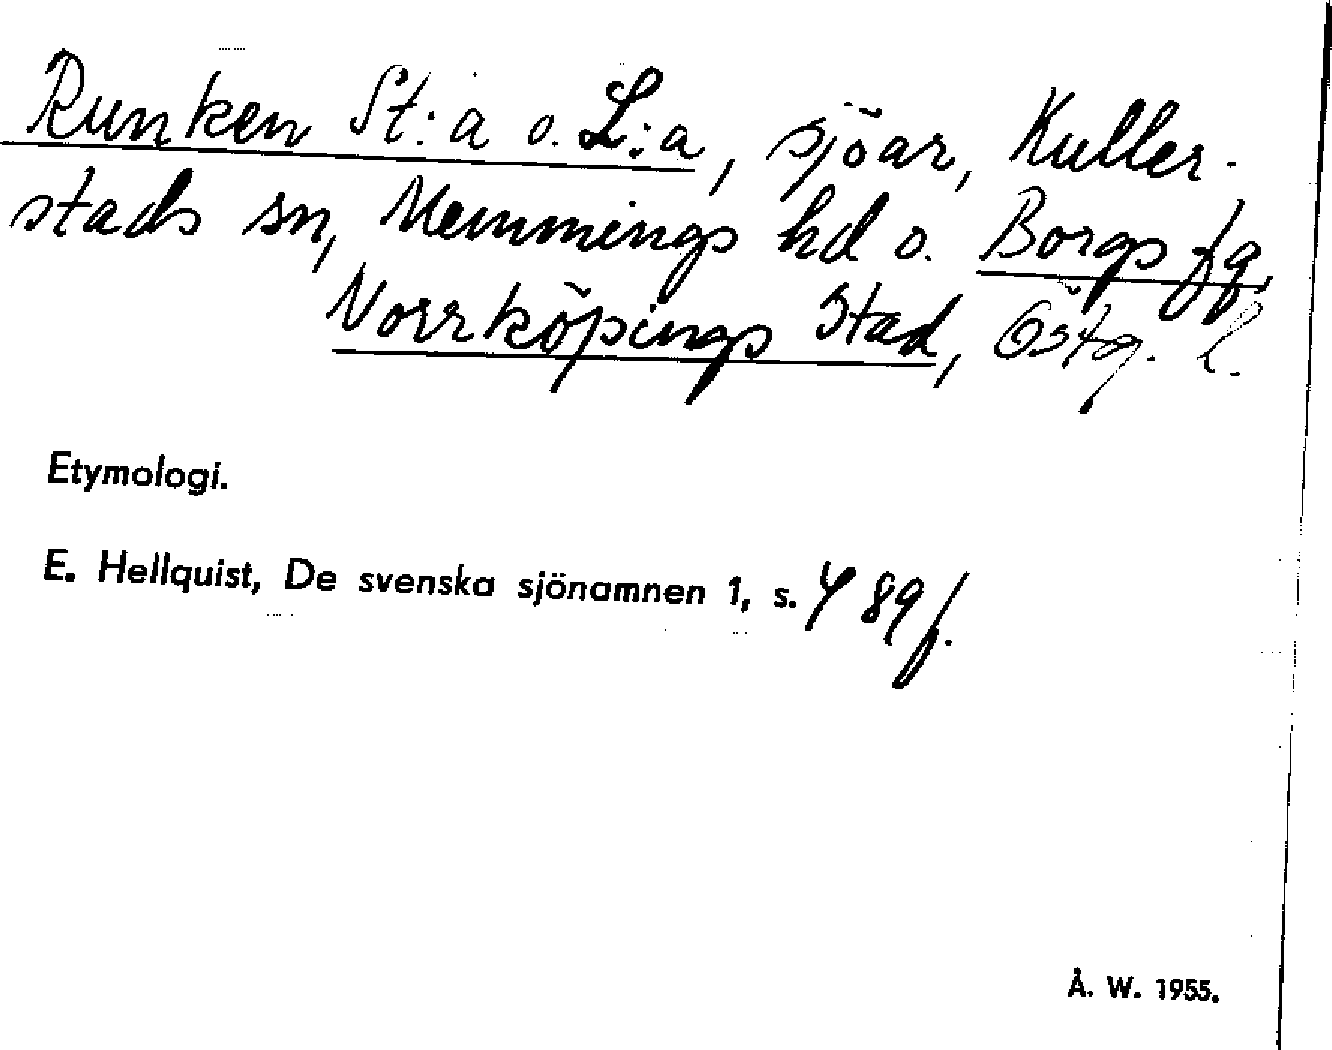 Runken St:a o. L:a, sjöar, Kuller-
stads sn, Memmings hd o. Borgs fg,
Norrköpings Stad, Östg. l.
Etymologi.
E. Hellquist, De svenska sjönamnen 1, s. 489 f.
Å. W. 1955.